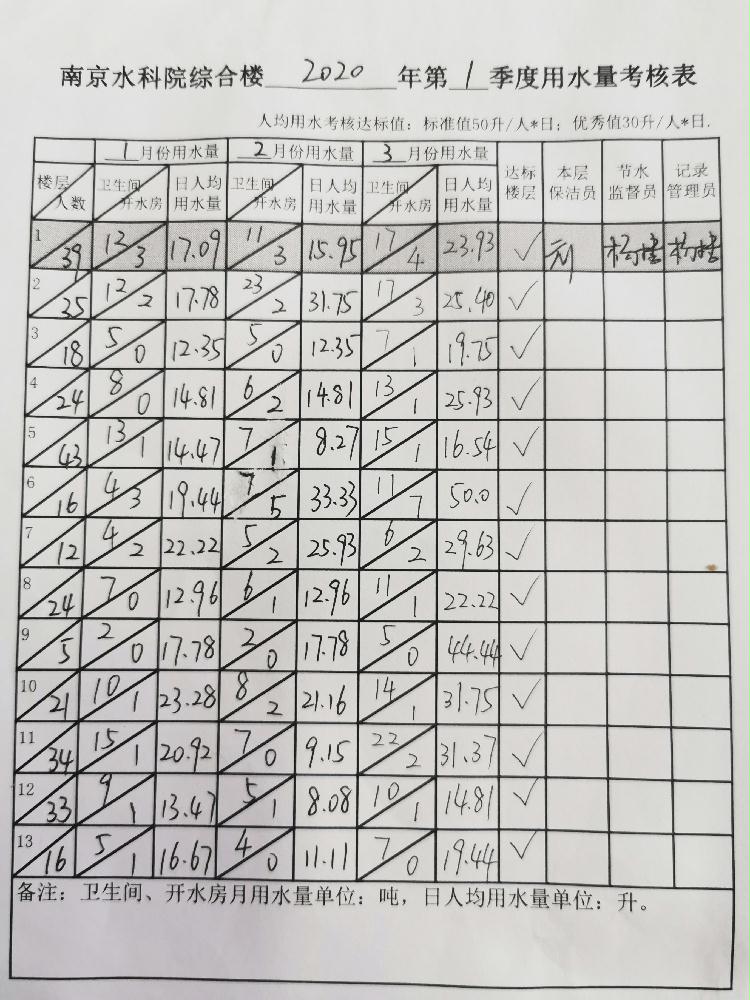 南京水科院综合楼 2020 年第 1 季度用水量考核表
人均用水考核达标值：标准值50升/人*日；优秀值30升/人*日.
1月份用水量 2月份用水量 3月份用水量
楼层 人数 卫生间 开水房 日人均用水量 卫生间 开水房 日人均用水量 卫生间 开水房 日人均用水量 达标楼层 本层保洁员 节水监督员 记录管理员
1 39 12 3 17.09 11 3 15.95 17 4 23.93 ✓
2 35 12 2 17.78 23 2 31.75 17 3 25.40 ✓
3 18 5 0 12.35 5 0 12.35 7 1 19.75 ✓
4 24 8 0 14.81 6 2 14.81 13 1 25.93 ✓
5 43 13 1 14.47 7 1 8.27 15 1 16.54 ✓
6 16 4 3 19.44 7 5 33.33 11 7 50.0 ✓
7 12 4 2 22.22 5 2 25.93 6 2 29.63 ✓
8 24 7 0 12.96 6 1 12.96 11 1 22.22 ✓
9 5 2 0 17.78 2 0 17.78 5 0 44.44 ✓
10 21 10 1 23.28 8 2 21.16 14 1 31.75 ✓
11 34 15 1 20.92 7 0 9.15 22 2 31.37 ✓
12 33 9 1 13.47 5 1 8.08 10 1 14.81 ✓
13 16 5 1 16.67 4 0 11.11 7 0 19.44 ✓
备注：卫生间、开水房月用水量单位：吨，日人均用水量单位：升。